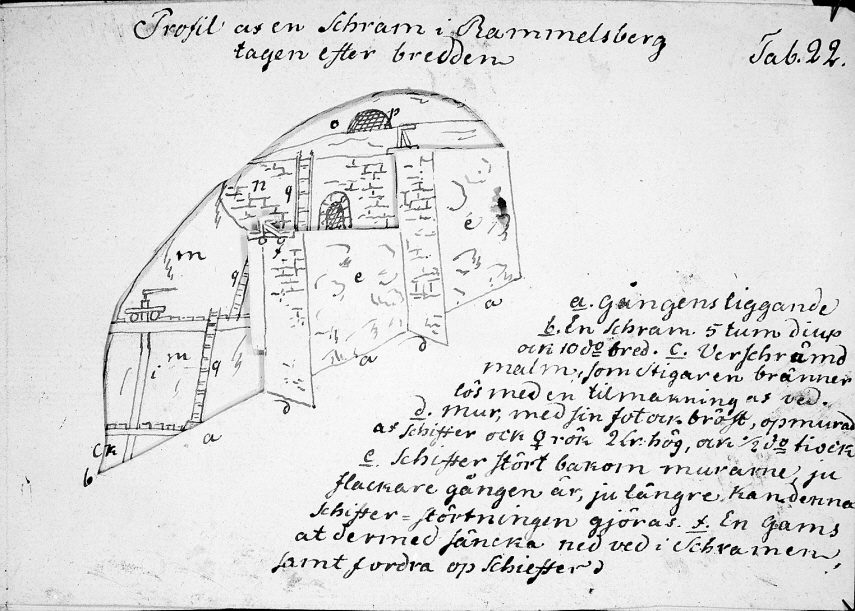 Profil af en Schram i Rammelsberg
tagen efter bredden
Tab. 22.
o p
n q
é
m q g
e
a
m i q
d a d
a
c k
b
a. Gångens liggande
b. En Schram 5 tum diup
ock 10 do bred. C. Verschrämd
malm, som Stigaren bränner
lös med en tilmakning af ved.
d. mur, med sin fot ock bröst, opmurad
af Schiffer ock ♀ rök 2 Lr. hög, ock ½ do tiock
e. Schiffer stört bakom murarne, ju
flackare gången är, ju längre kan denna
Schiffer=störtningen gjöras. f. En Gams
at dermed säncka ned ved i Schramen,
samt fordra op Schieffer